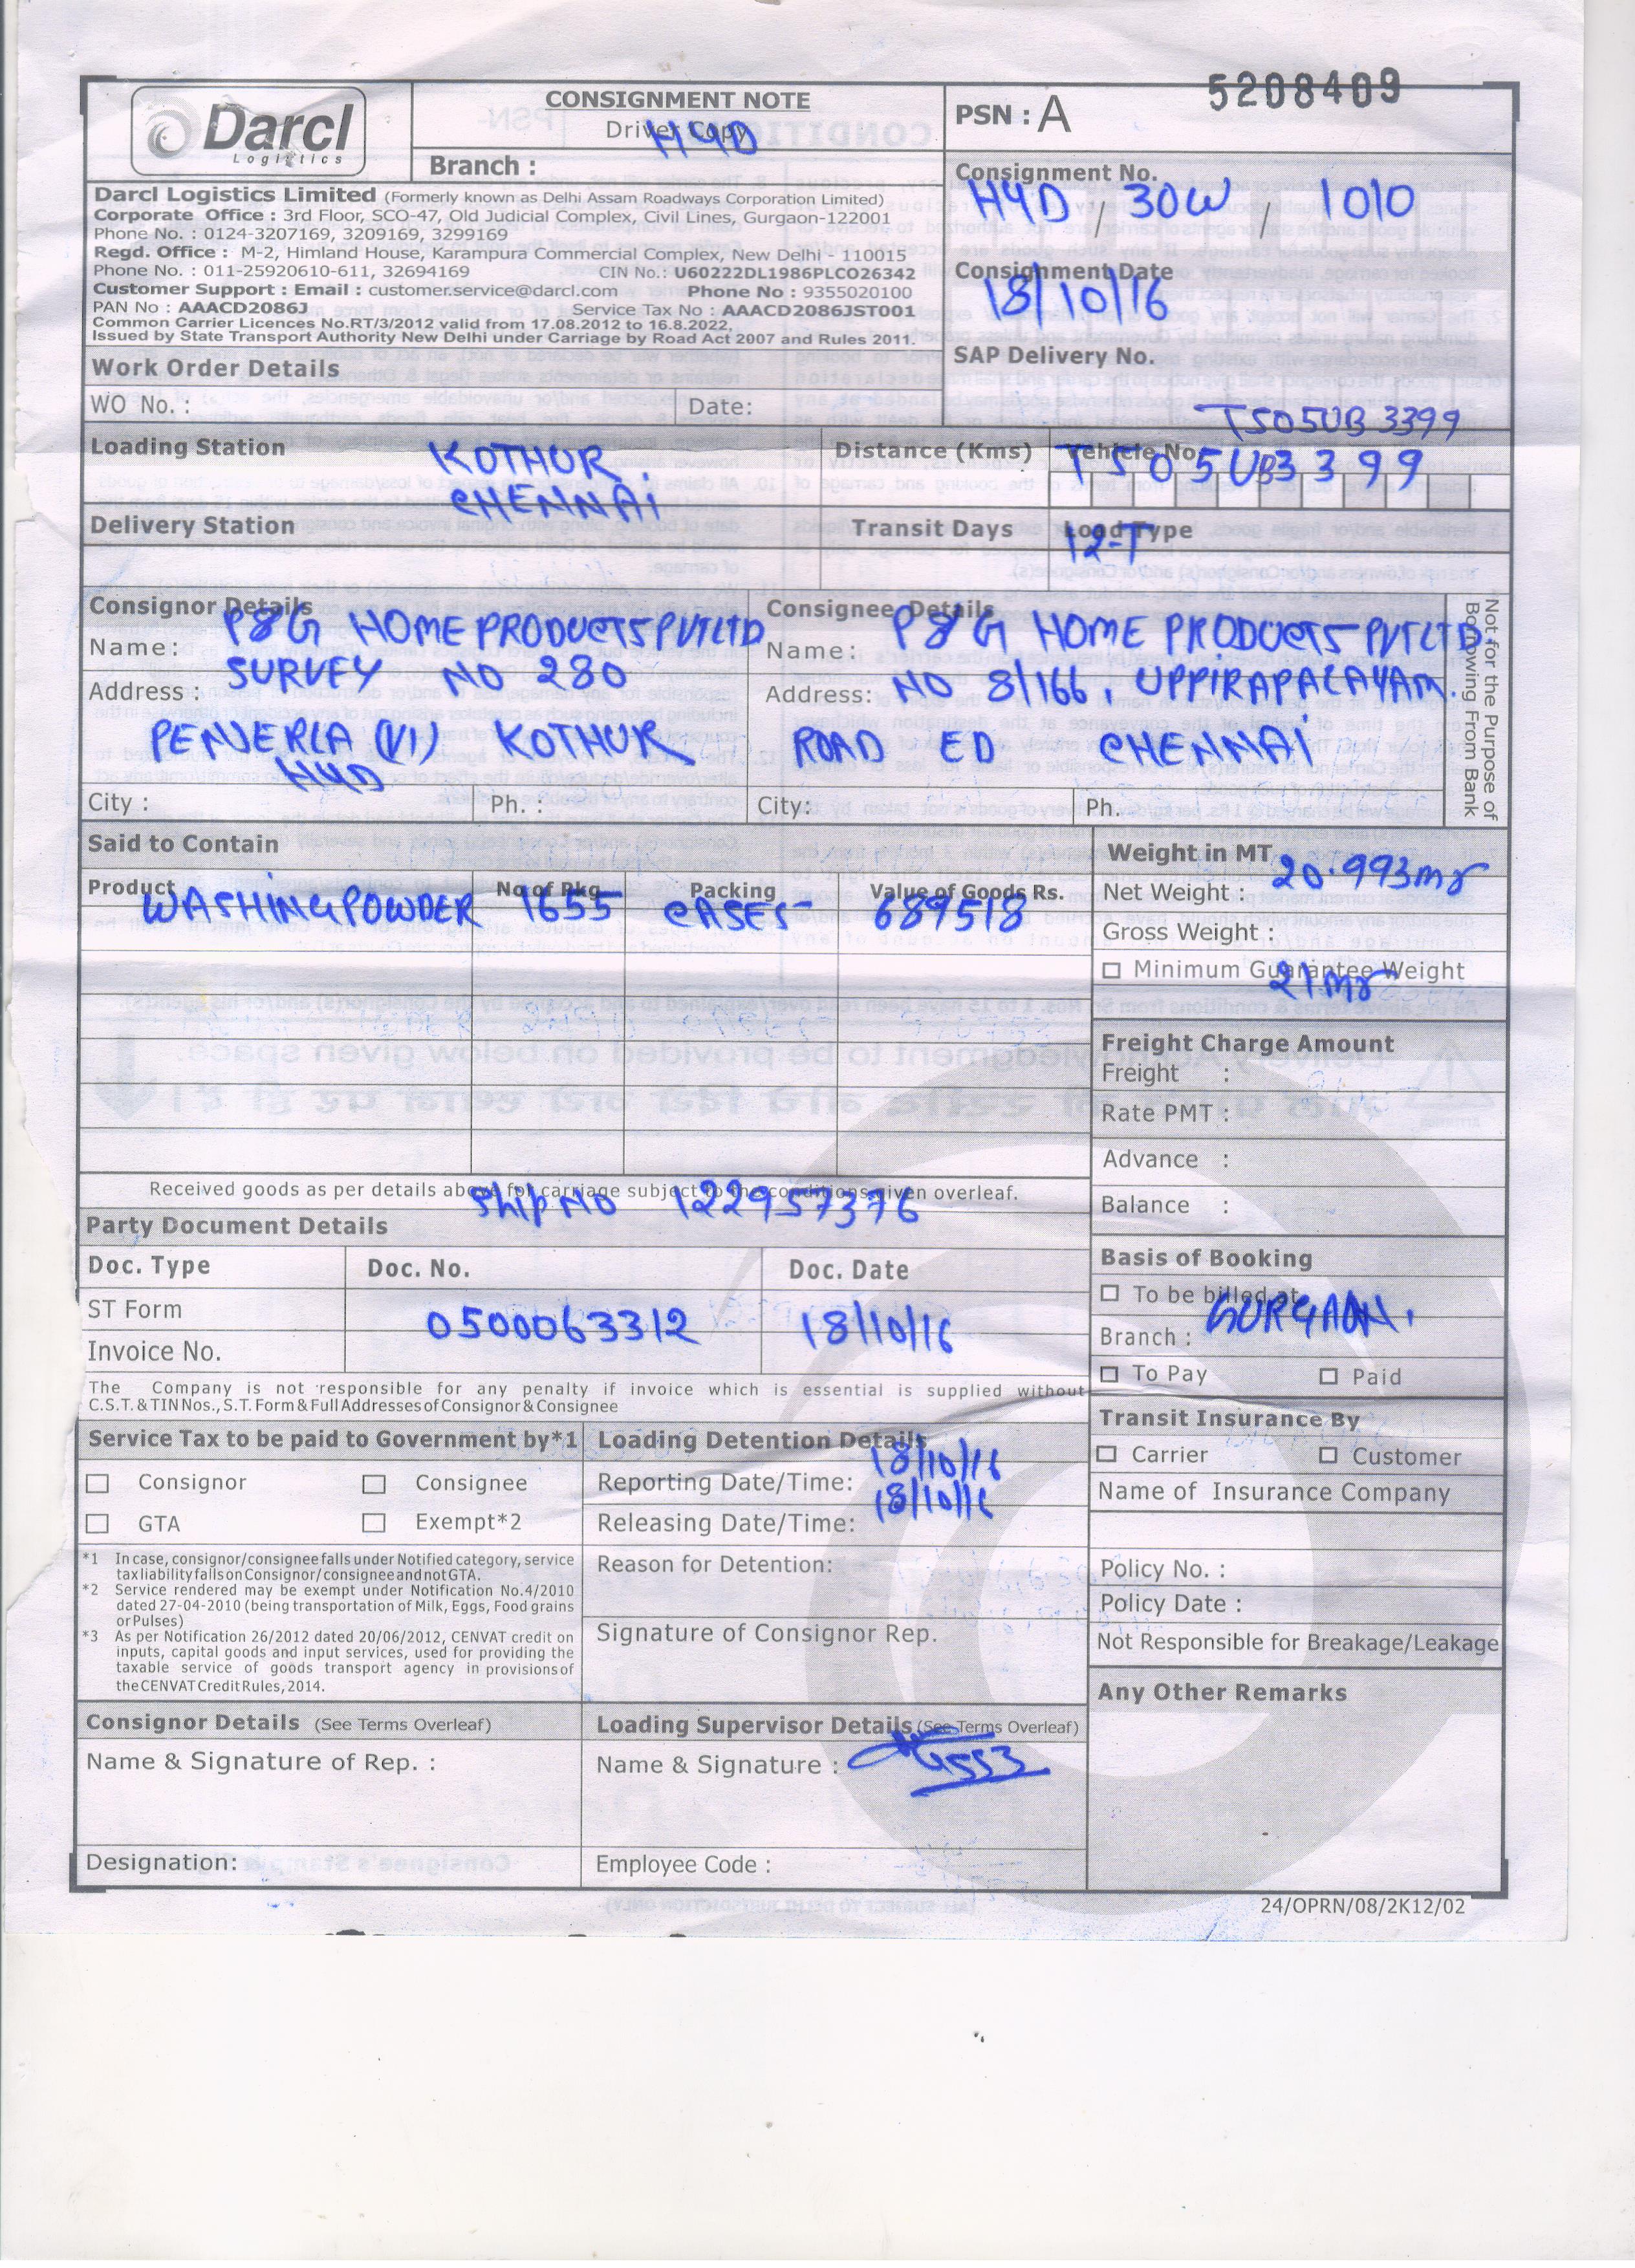 5208409
Darcl
Logistics
CONSIGNMENT NOTE
Driver Copy
HYD
Branch :
PSN : A
Darcl Logistics Limited (Formerly known as Delhi Assam Roadways Corporation Limited)
Corporate Office : 3rd Floor, SCO-47, Old Judicial Complex, Civil Lines, Gurgaon-122001
Phone No. : 0124-3207169, 3209169, 3299169
Regd. Office : M-2, Himland House, Karampura Commercial Complex, New Delhi - 110015
Phone No. : 011-25920610-611, 32694169 CIN No.: U60222DL1986PLCO26342
Customer Support : Email : customer.service@darcl.com Phone No : 9355020100
PAN No : AAACD2086J Service Tax No : AAACD2086JST001
Common Carrier Licences No.RT/3/2012 valid from 17.08.2012 to 16.8.2022,
Issued by State Transport Authority New Delhi under Carriage by Road Act 2007 and Rules 2011.
Consignment No.
HYD / 30W / 1010
Consignment Date
18/10/16
SAP Delivery No.
Work Order Details
WO No. : Date:
TS05UB3399
Loading Station KOTHUR
CHENNAi
Distance (Kms)
Vehicle No.
TS05UB3399
Delivery Station
Transit Days
Load Type
12-T
Consignor Details
Name: P&G HOME PRODUCTS PVT LTD
Address : SURVEY NO 280
PENJERLA (VI) KOTHUR
HYD
City : Ph. :
Consignee Details
Name: P&G HOME PRODUCTS PVT LTD.
Address: NO 8/166, UPPIRAPALAYAM.
ROAD ED CHENNAi
City: Ph.
Not for the Purpose of
Borrowing From Bank
Said to Contain
Product No of Pkg Packing Value of Goods Rs.
WASHING POWDER 1655 CASES 689518
Weight in MT
Net Weight : 20.993mr
Gross Weight :
Minimum Guarantee Weight
21mr
Freight Charge Amount
Freight :
Rate PMT :
Advance :
Balance :
Received goods as per details above for carriage subject to the conditions given overleaf.
Ship NO 122957376
Party Document Details
Doc. Type Doc. No. Doc. Date
ST Form
0500063312 18/10/16
Invoice No.
Basis of Booking
To be billed at
GURGAON.
Branch :
To Pay Paid
The Company is not responsible for any penalty if invoice which is essential is supplied without
C.S.T. & TIN Nos., S.T. Form & Full Addresses of Consignor & Consignee
Service Tax to be paid to Government by*1
Consignor Consignee
GTA Exempt*2
*1 In case, consignor/consignee falls under Notified category, service
tax liability falls on Consignor/consignee and not GTA.
*2 Service rendered may be exempt under Notification No.4/2010
dated 27-04-2010 (being transportation of Milk, Eggs, Food grains
or Pulses)
*3 As per Notification 26/2012 dated 20/06/2012, CENVAT credit on
inputs, capital goods and input services, used for providing the
taxable service of goods transport agency in provisions of
the CENVAT Credit Rules, 2014.
Loading Detention Details
Reporting Date/Time: 18/10/16
Releasing Date/Time: 18/10/16
Reason for Detention:
Signature of Consignor Rep.
Transit Insurance By
Carrier Customer
Name of Insurance Company
Policy No. :
Policy Date :
Not Responsible for Breakage/Leakage
Any Other Remarks
Consignor Details (See Terms Overleaf)
Name & Signature of Rep. :
Designation:
Loading Supervisor Details (See Terms Overleaf)
Name & Signature :
Employee Code :
24/OPRN/08/2K12/02